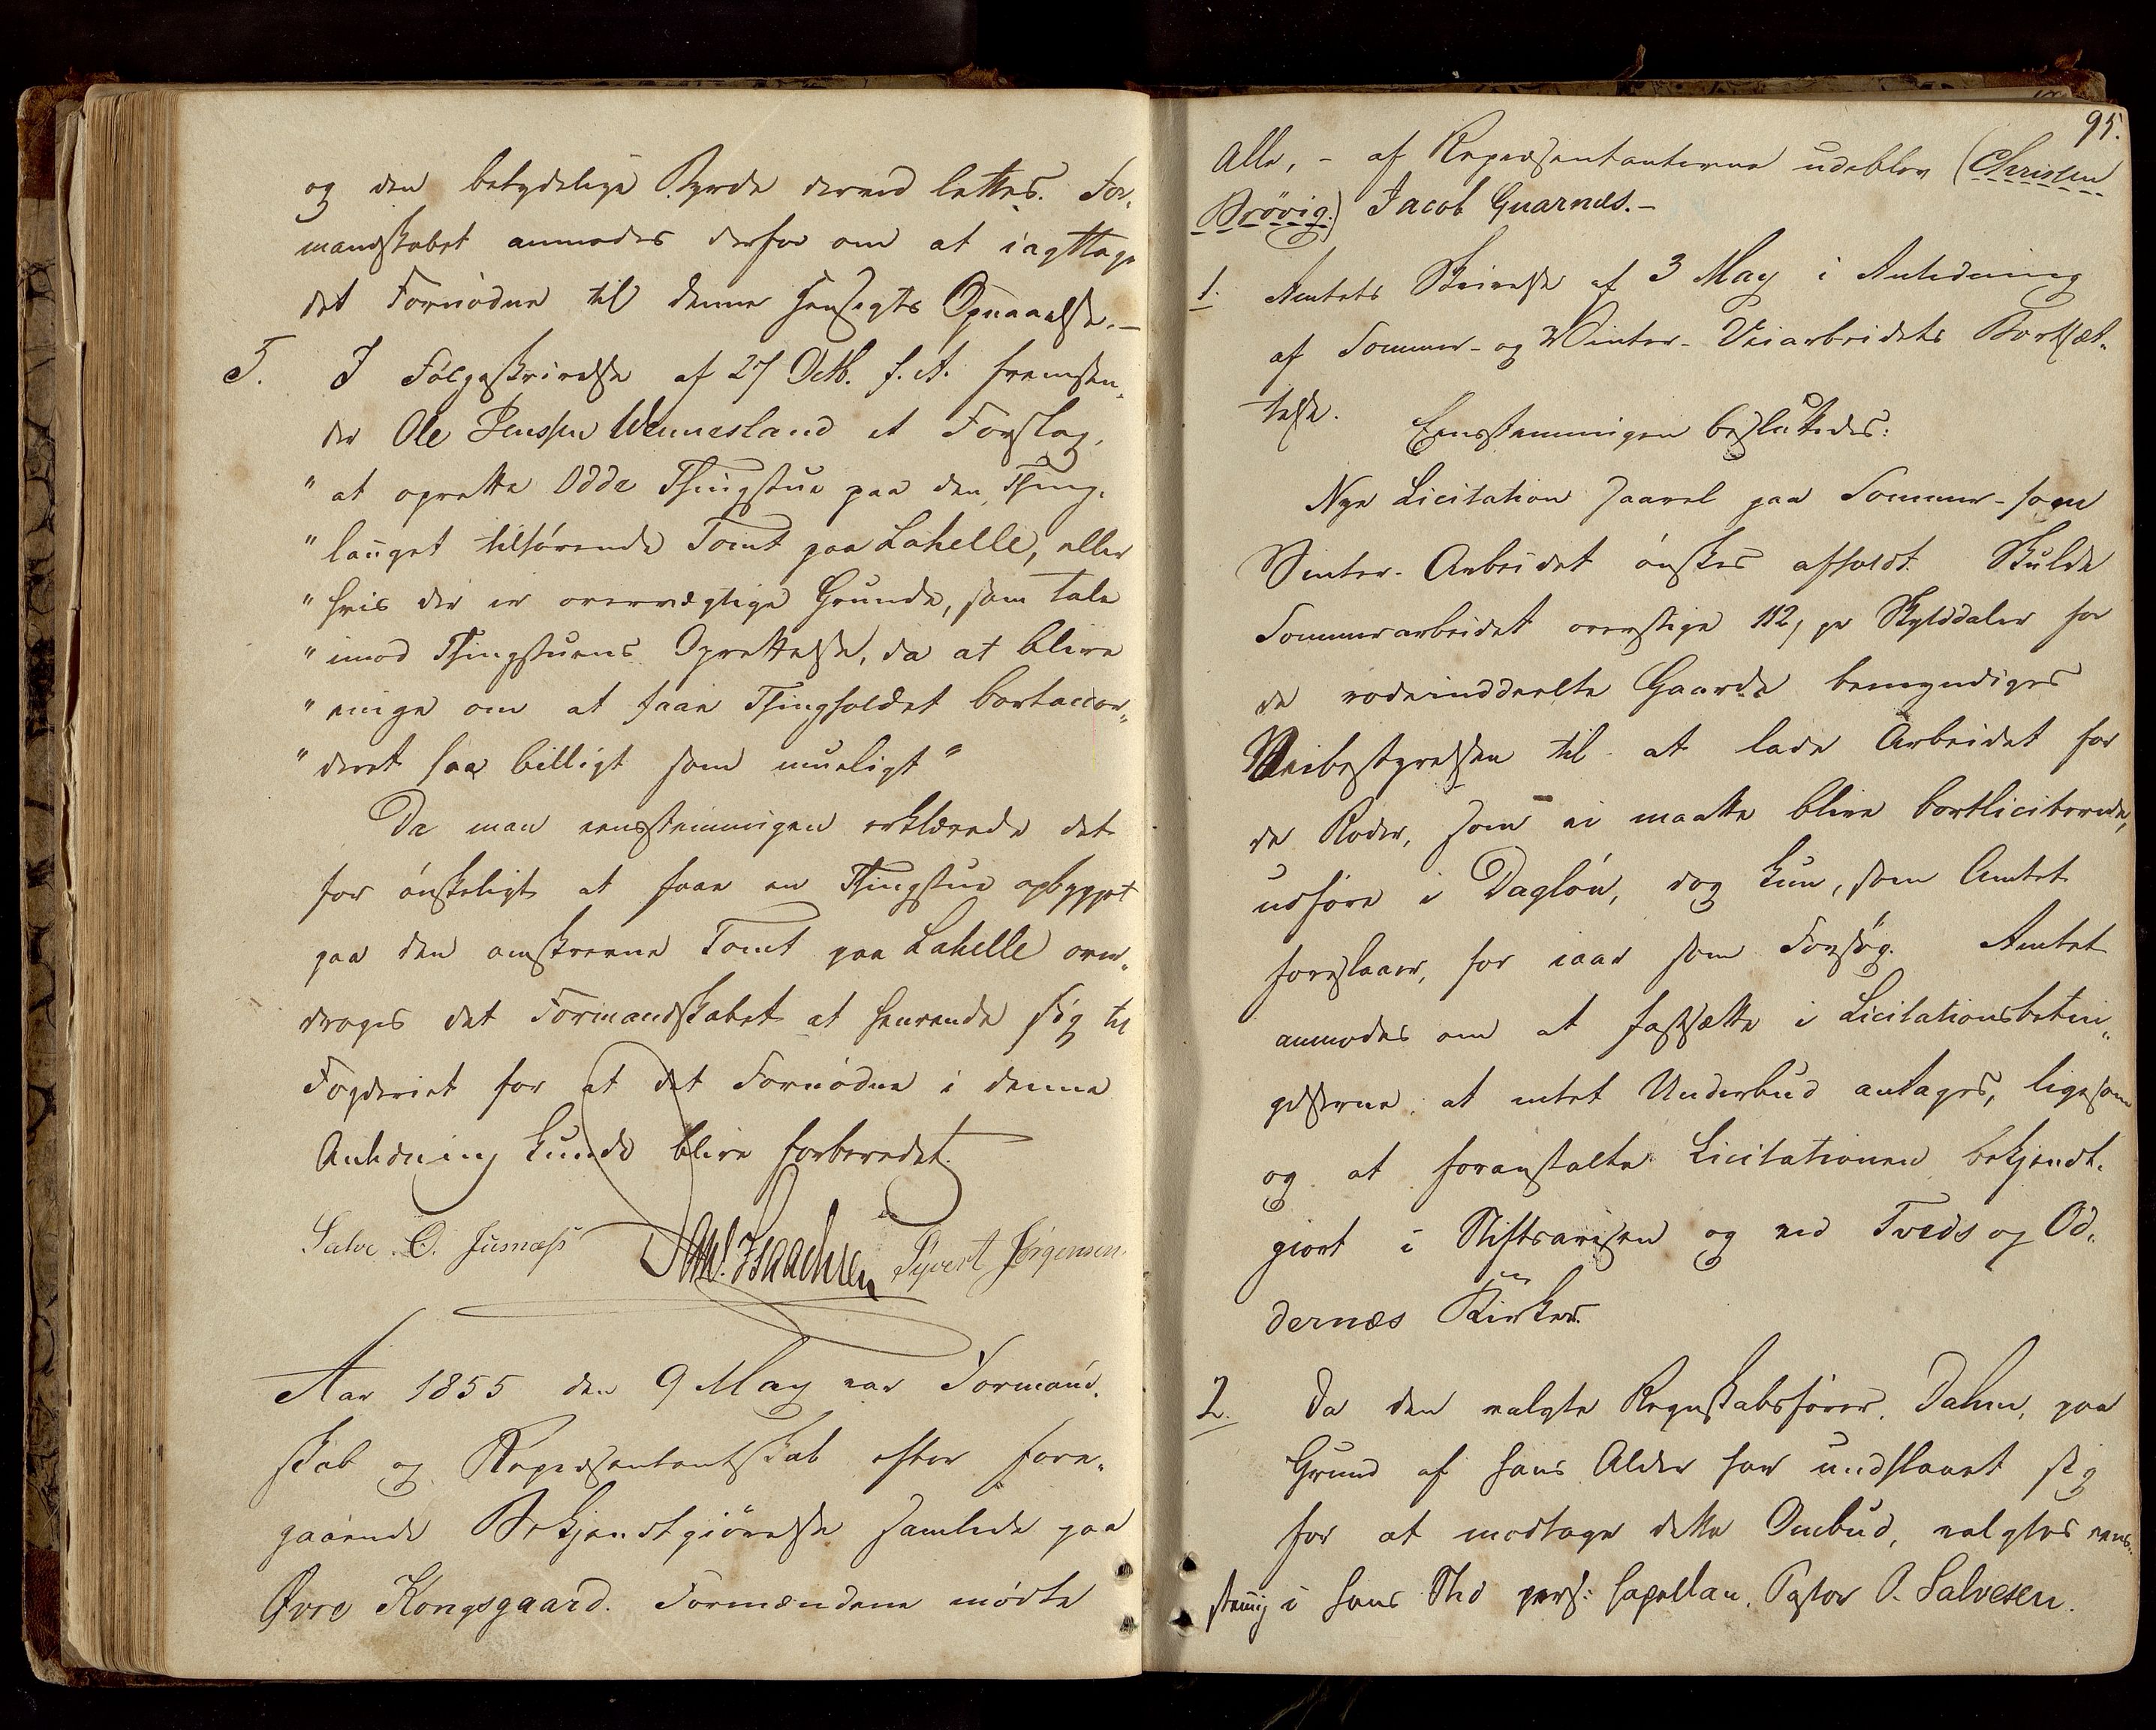 og den betydelige Byrde derved lettes. For-
mandskabet anmodes derfor om at iagttage
det Fornødne til denne Hensigts Opnaaelse.-
5. I Følgeskrivelse af 27 Octb. f. A. fremsen-
der Ole Jenssen Wennesland et Forslag,
" at oprette Odde Thingstue paa den Thing-
" lauget tilhørende Tomt paa Lahelle, eller
" hvis der er overvægtige Grunde, som tale
" imod Thingstuens Oprettelse, da at blive
" enige om at faae Thingholdet bortaccor-
" deret saa billigt som mueligt "
Da man eensstemmigen erklærede det
for ønskeligt at faae en Thingstue opbygget
paa den omskrevne Tomt paa Lahelle over-
droges det Formandskabet at henvende sig til
Fogderiet for at det Fornødne i denne
Anledning kunde blive forberedet.
Salve O. Jusnæs Isaachsen Syvert Jørgensen
Aar 1855 den 9 May var Formand-
skab og Repræsentantskab efter fore-
gaaende Bekjendtgiørelse samlede paa
Øvre Kongsgaard. Formændene mødte
95.
Alle, - af Repræsentanterne udeblev (Christen
Brøvig.) Jacob Quarnes. -
1. Amtets Skrivelse af 3 May i Anledning
af Sommer- og Vinter-Veiarbeidets Bortsæt-
telse. Eensstemmigen besluttedes:
Nye Licitation saavel paa Sommer- som
Vinter-Arbeidet ønskes afholdt. Skulde
Sommerarbeidet overstige 112 pr Skylddaler for
de rodeinddeelte Gaarde bemyndiges
Veibestyrelsen til at lade Arbeidet for
de Roder, som ei maatte blive bortliciterede,
udføre i Dagløn, dog kun, som Amtet
foreslaaer, for iaar som Forsøg. Amtet
anmodes om at fastsætte i Licitationsbetin-
gelserne, at intet Underbud antages, ligesom
og at foranstalte Licitationen bekjendt-
giort i Stiftsavisen og ved Tveds og Od-
dernæs Kirker.
2. Da den valgte Regnskabsfører, Dahm, paa
Grund af hans Alder har undslaaet sig
for at modtage dette Ombud, valgtes eens-
stemig i hans Sted pers: Capellan, Pastor O. Salvesen.